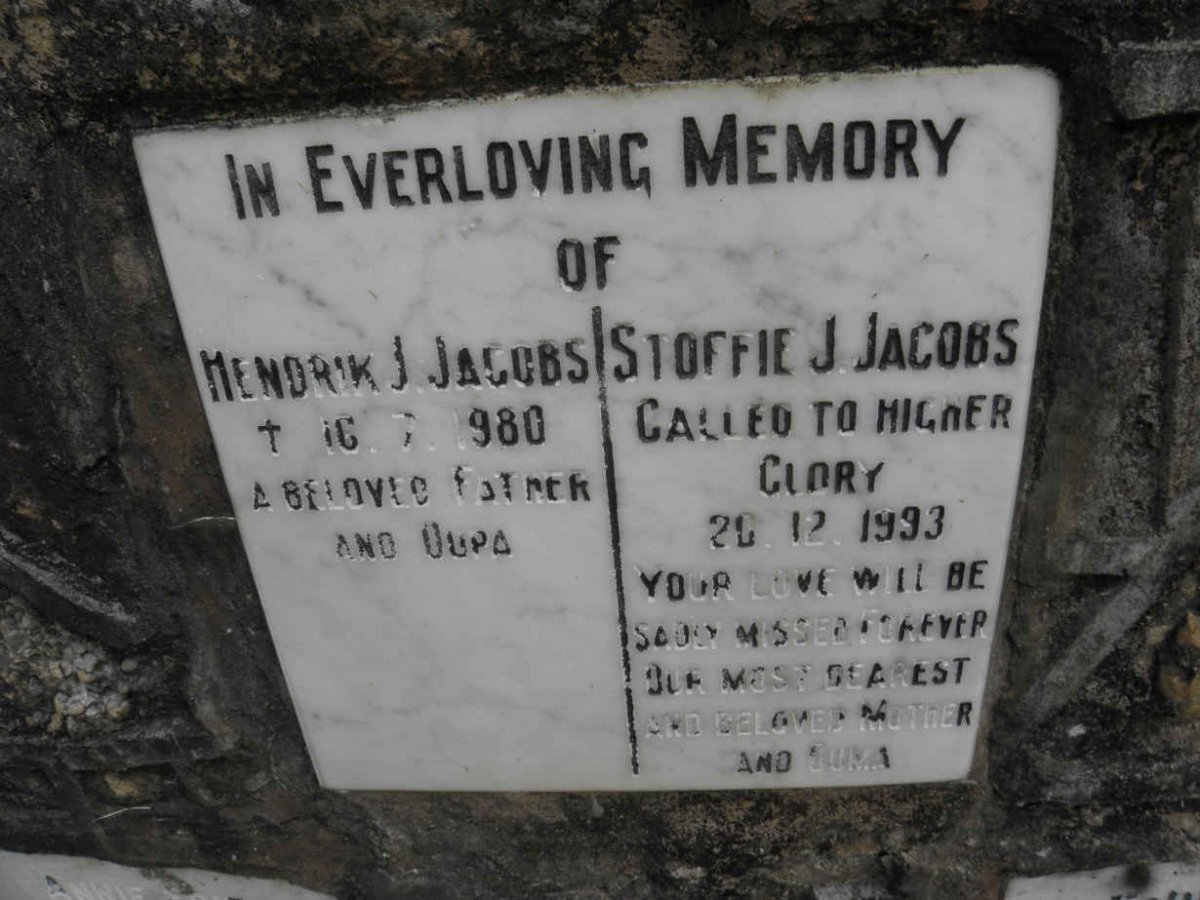 IN EVERLOVING MEMORY
OF
HENDRIK J. JACOBS
† 16. 7. 1980
A BELOVED FATHER
AND OUPA
STOFFIE J. JACOBS
CALLED TO HIGHER
GLORY
20. 12. 1993
YOUR LOVE WILL BE
SADLY MISSED FOREVER
OUR MOST DEAREST
AND BELOVED MOTHER
AND OUMA
ANNIE